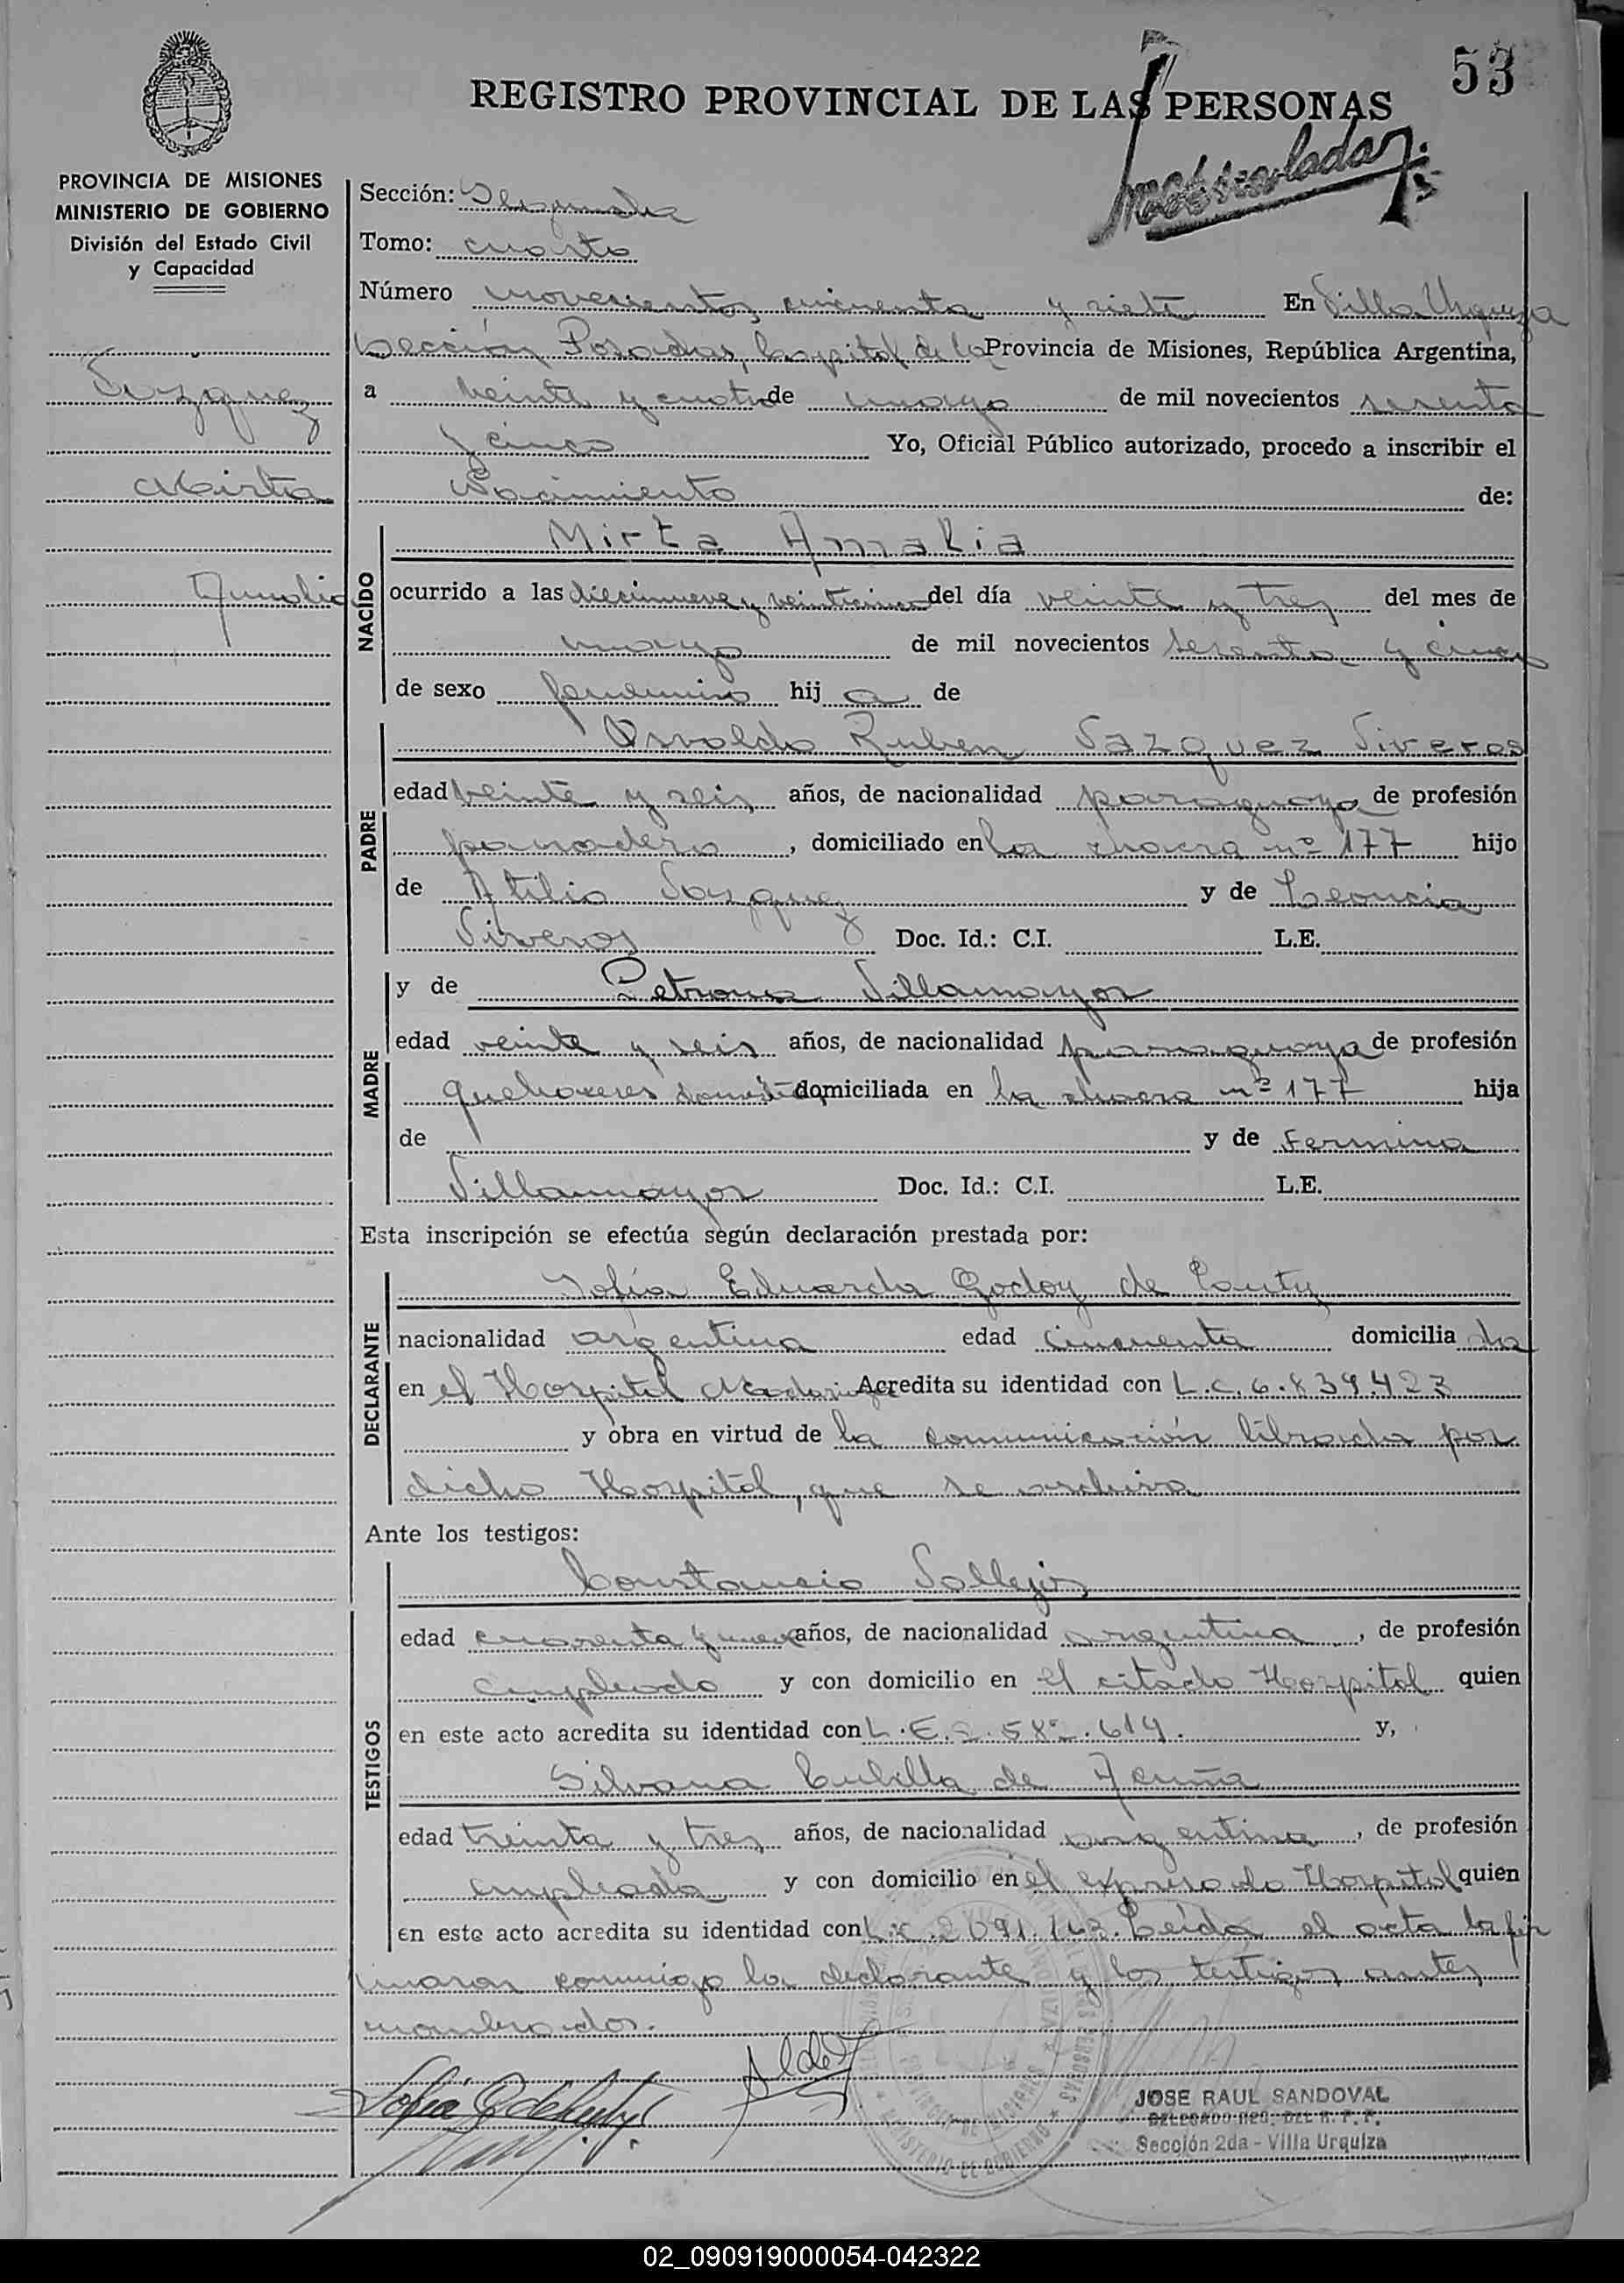 53
REGISTRO PROVINCIAL DE LAS PERSONAS
Matriculada
PROVINCIA DE MISIONES
MINISTERIO DE GOBIERNO
División del Estado Civil
y Capacidad
Vazquez
Mirta
Amalia
Sección: Segunda
Tomo: cuarto
Número novecientos cincuenta y siete En Villa Urquiza
Sección Posadas, Capital de la Provincia de Misiones, República Argentina,
a veinte y cuatro de mayo de mil novecientos sesenta
y cinco Yo, Oficial Público autorizado, procedo a inscribir el
Nacimiento de:
NACÍDO
Mirta Amalia
ocurrido a las diecinueve y veinticinco del día veinte y tres del mes de
mayo de mil novecientos sesenta y cinco
de sexo femenino hij a de
PADRE
Osvaldo Ruben Vazquez Siveros
edad veinte y seis años, de nacionalidad paraguaya de profesión
panadero, domiciliado en la chacra nº 177 hijo
de Atilio Vazquez y de Leoncia
Siveros Doc. Id.: C.I. L.E.
MADRE
y de Petrona Villamayor
edad veinte y seis años, de nacionalidad paraguaya de profesión
quehaceres domiciliada en la chacra nº 177 hija
de y de Fermina
Villamayor Doc. Id.: C.I. L.E.
Esta inscripción se efectúa según declaración prestada por:
DECLARANTE
Sofía Eduarda Godoy de
nacionalidad argentina edad cincuenta domicilia da
en el Hospital Madariaga Acredita su identidad con L.C. 6.839.423
y obra en virtud de la comunicación librada por
dicho Hospital, que se archiva
Ante los testigos:
TESTIGOS
Constancio Vallejos
edad cuarenta y nueve años, de nacionalidad argentina, de profesión
empleado y con domicilio en el citado Hospital quien
en este acto acredita su identidad con L.E. y,
Silvana Cubilla de Acuña
edad treinta y tres años, de nacionalidad argentina, de profesión
empleada y con domicilio en el expresado Hospital quien
en este acto acredita su identidad con Leída el acta la fir
maron conmigo la declarante y los testigos antes
nombrados.
JOSE RAUL SANDOVAL
Sección 2da - Villa Urquiza
02_090919000054-042322